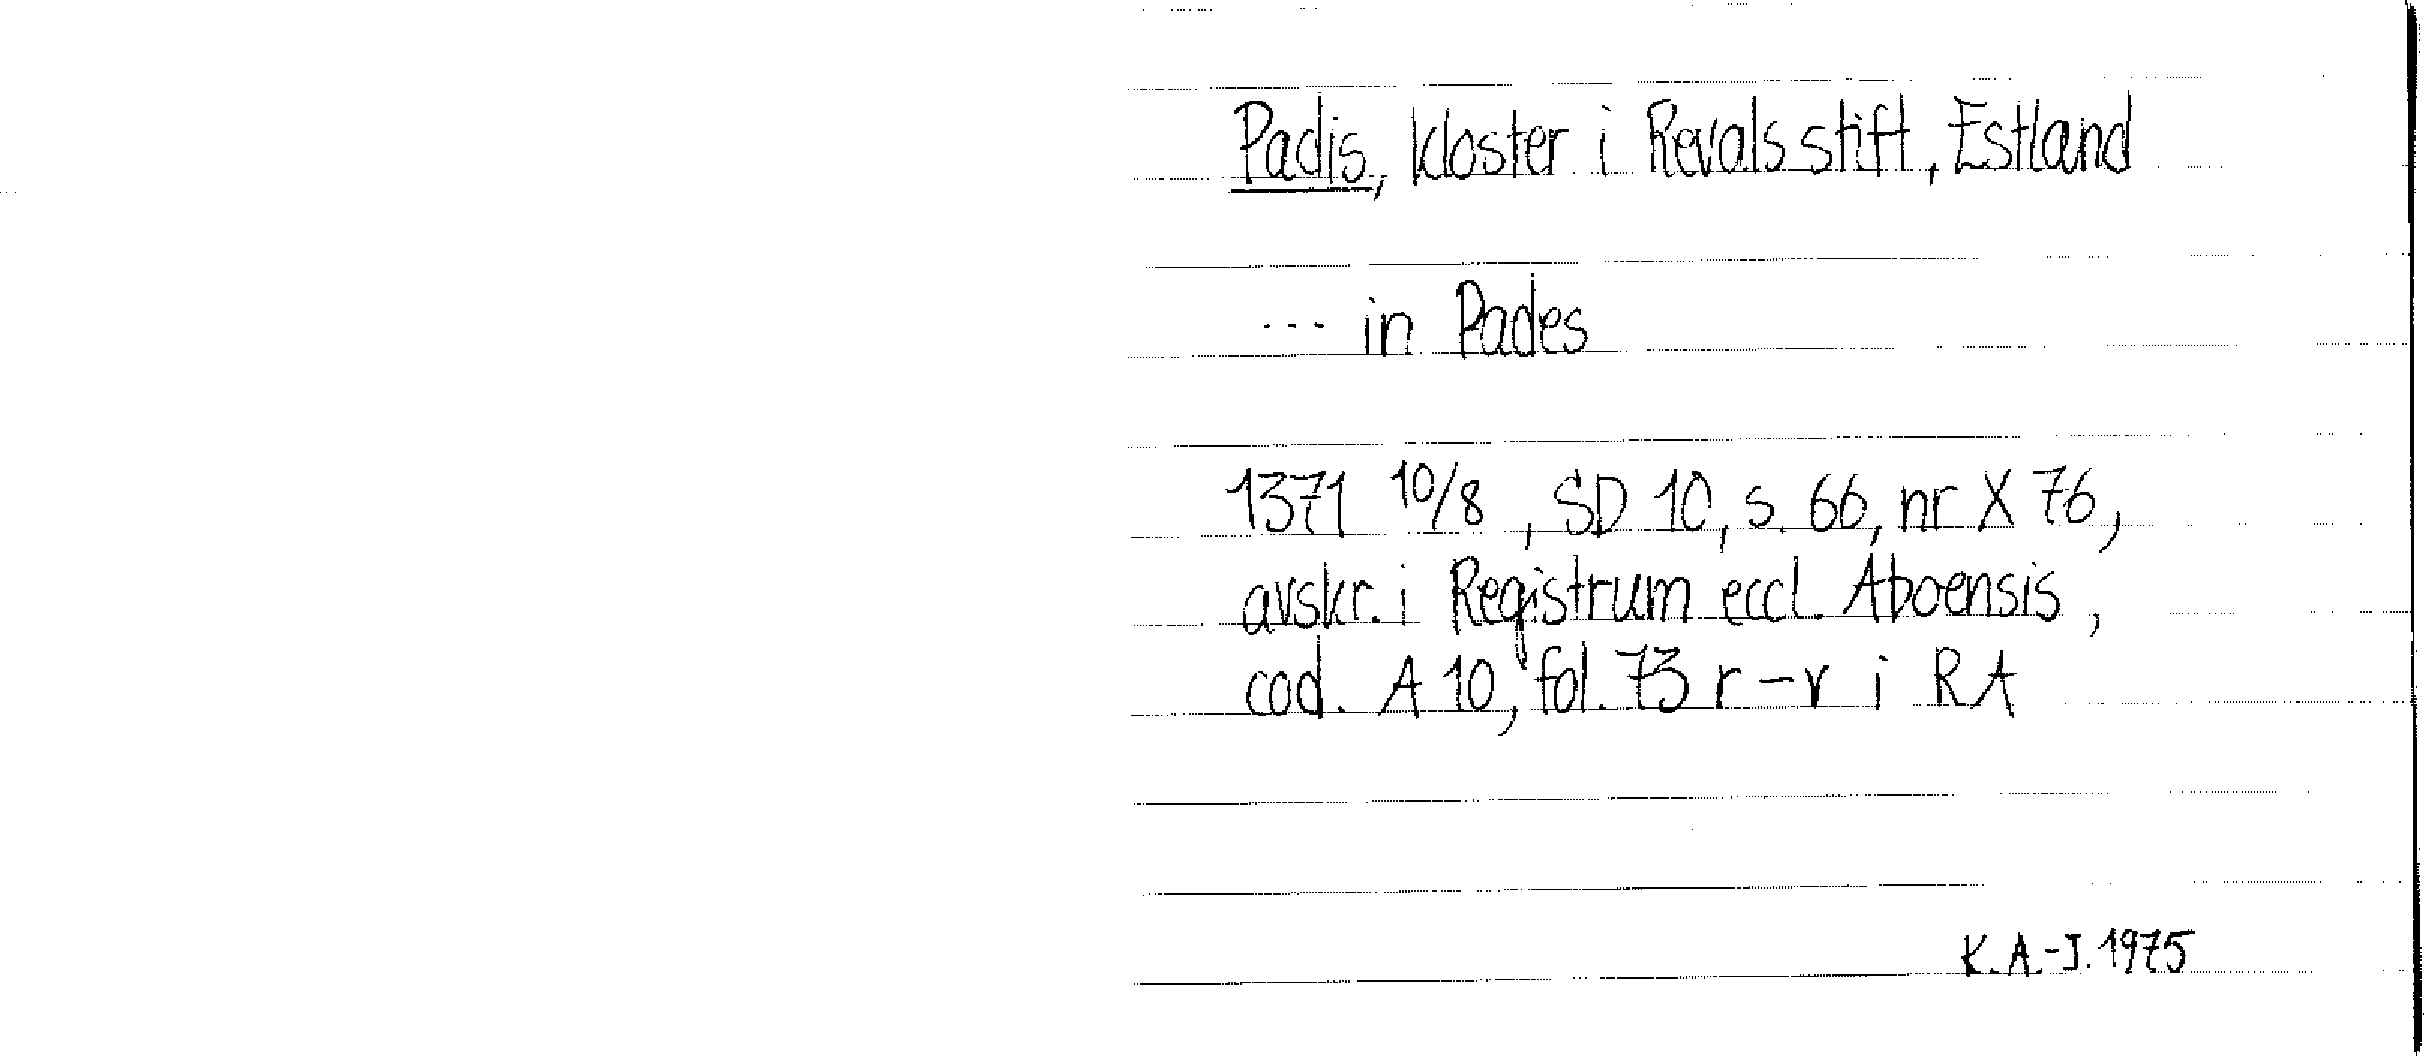 Padis, kloster i Revals stift, Estland
--- in Pades
1371 10/8, SD 10, s. 66, nr X 76,
avskr. i Registrum eccl. Aboensis,
cod. A 10, fol. 73 r-v i RA
K.A.-J. 1975